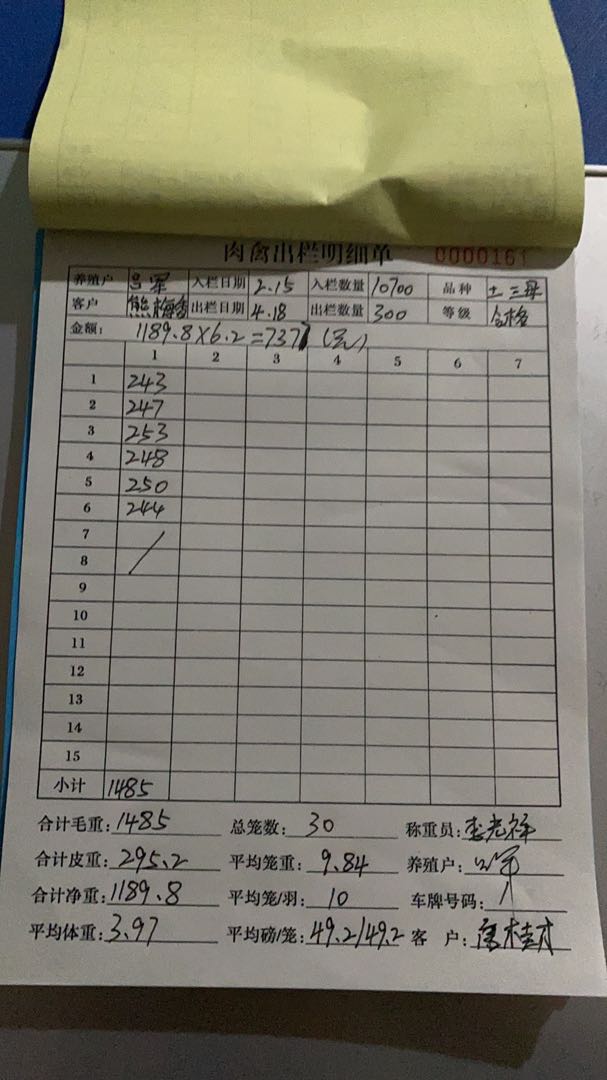 肉禽出栏明细单 0000161
养殖户 吕军 入栏日期 2.15 入栏数量 10700 品种 土三号
客户 熊梅香 出栏日期 4.18 出栏数量 300 等级 合格
金额: 1189.8×6.2=7377 (元)
1 2 3 4 5 6 7
1 243
2 247
3 253
4 248
5 250
6 244
7
8
9
10
11
12
13
14
15
小计 1485
合计毛重: 1485 总笼数: 30 称重员: 李光祥
合计皮重: 295.2 平均笼重: 9.84 养殖户: 吕军
合计净重: 1189.8 平均笼/羽: 10 车牌号码: /
平均体重: 3.97 平均磅/笼: 49.2/49.2 客 户: